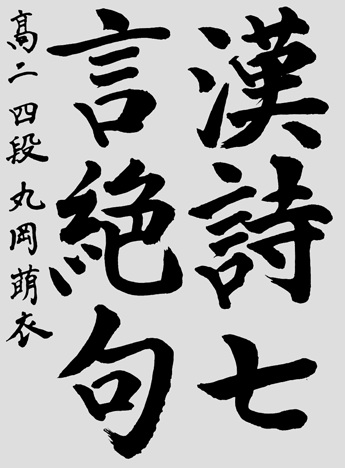 漢詩七
言絶句
高二 四段 丸岡萌衣